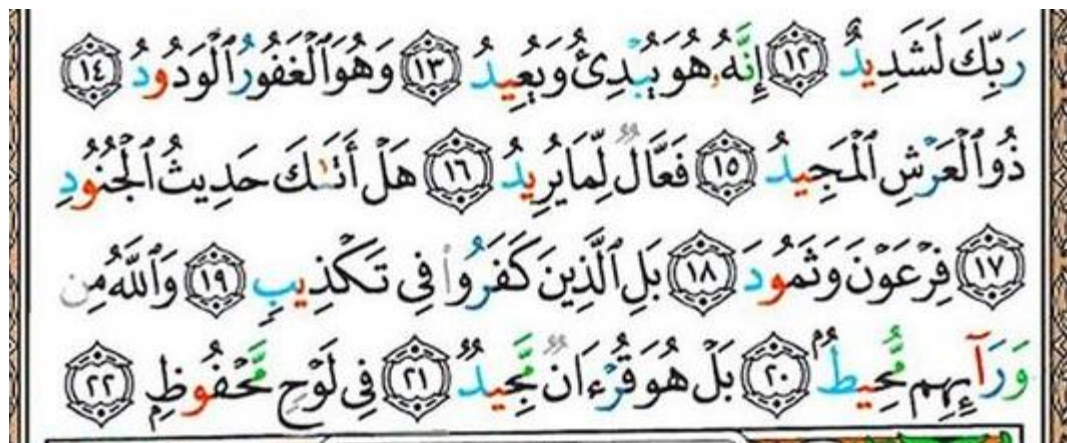 رَبِّكَ لَشَدِيدٌ ١٢ إِنَّهُۥ هُوَ يُبۡدِئُ وَيُعِيدُ ١٣ وَهُوَ ٱلۡغَفُورُ ٱلۡوَدُودُ ١٤
ذُو ٱلۡعَرۡشِ ٱلۡمَجِيدُ ١٥ فَعَّالٞ لِّمَا يُرِيدُ ١٦ هَلۡ أَتَىٰكَ حَدِيثُ ٱلۡجُنُودِ
١٧ فِرۡعَوۡنَ وَثَمُودَ ١٨ بَلِ ٱلَّذِينَ كَفَرُواْ فِي تَكۡذِيبٖ ١٩ وَٱللَّهُ مِن
وَرَآئِهِم مُّحِيطُۢ ٢٠ بَلۡ هُوَ قُرۡءَانٞ مَّجِيدٞ ٢١ فِي لَوۡحٖ مَّحۡفُوظِۭ ٢٢